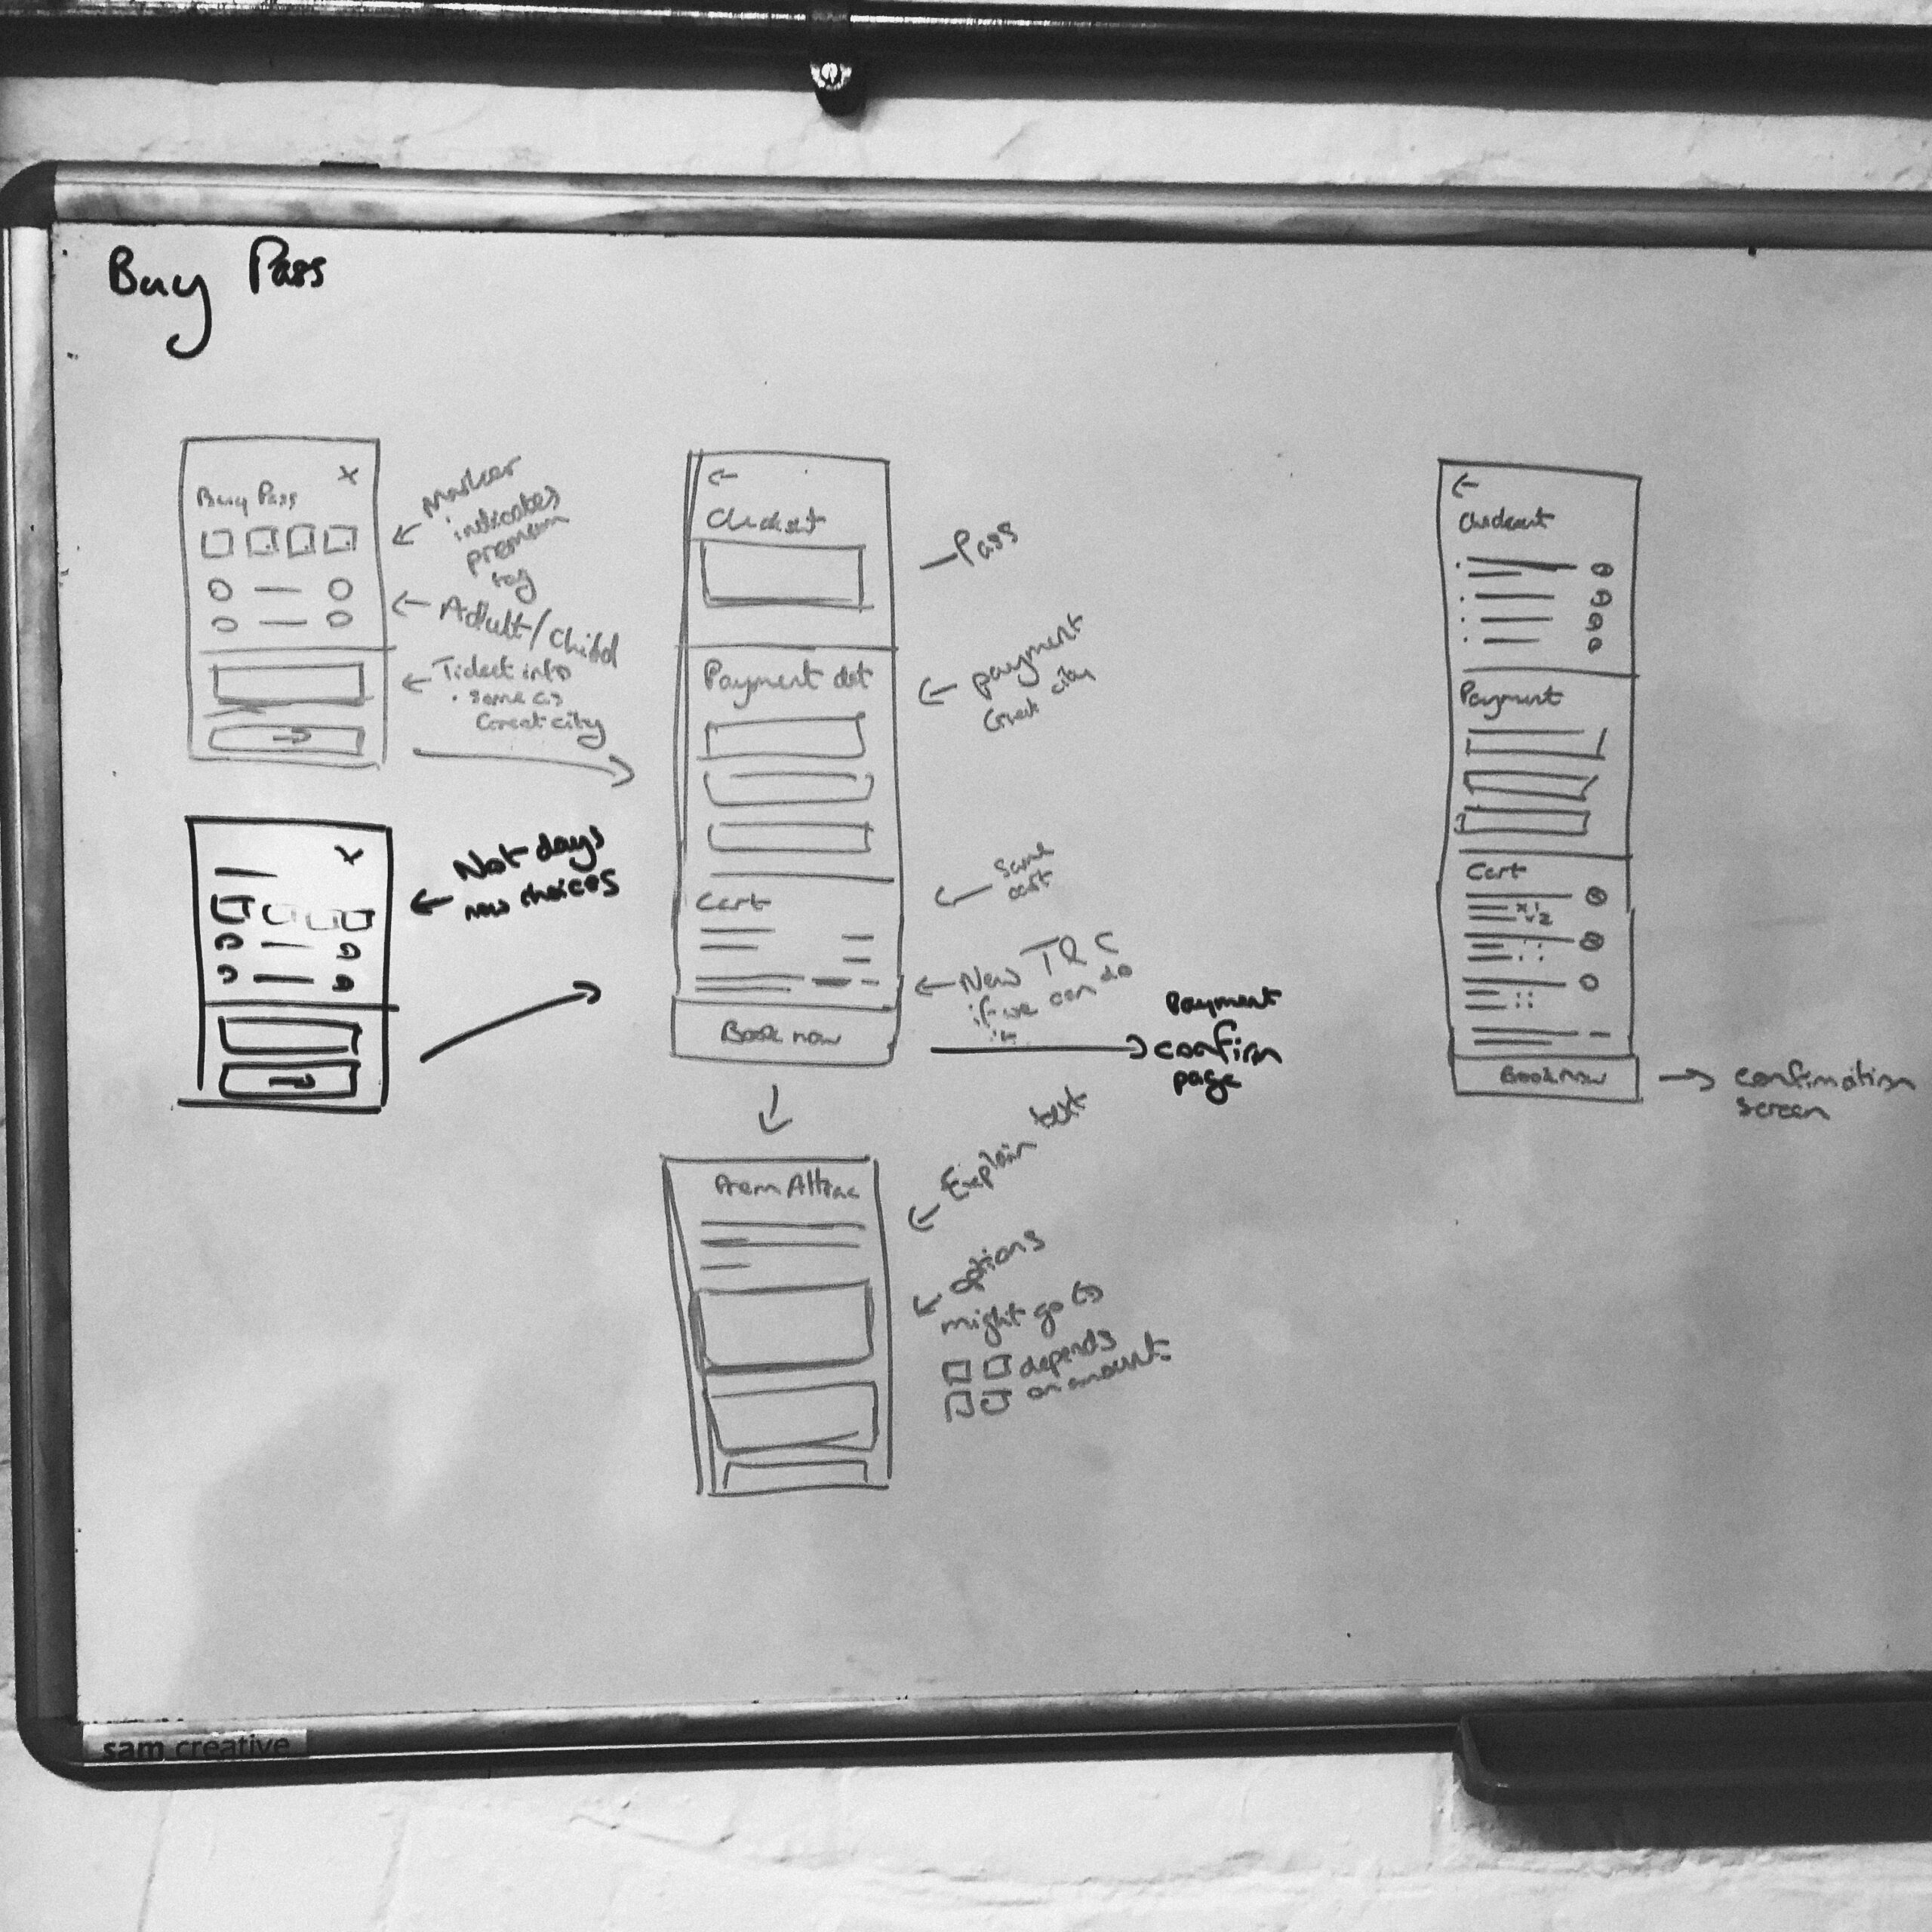 Buy Pass
Buy Pass
X
Marker
indicates
premium
tag
Adult/Child
Ticket info
. same as
Great city
X
Not days
now choices
Checkout
Pass
Payment det
payment
Great city
Cart
same
cart
New T&C
if we can do
it
Book now
Payment
confirm
page
Prem Attrac
Explain text
options
might go to
depends
on amount.
Checkout
Payment
Cart
x1
x2
Book now
confirmation
screen
sam creative